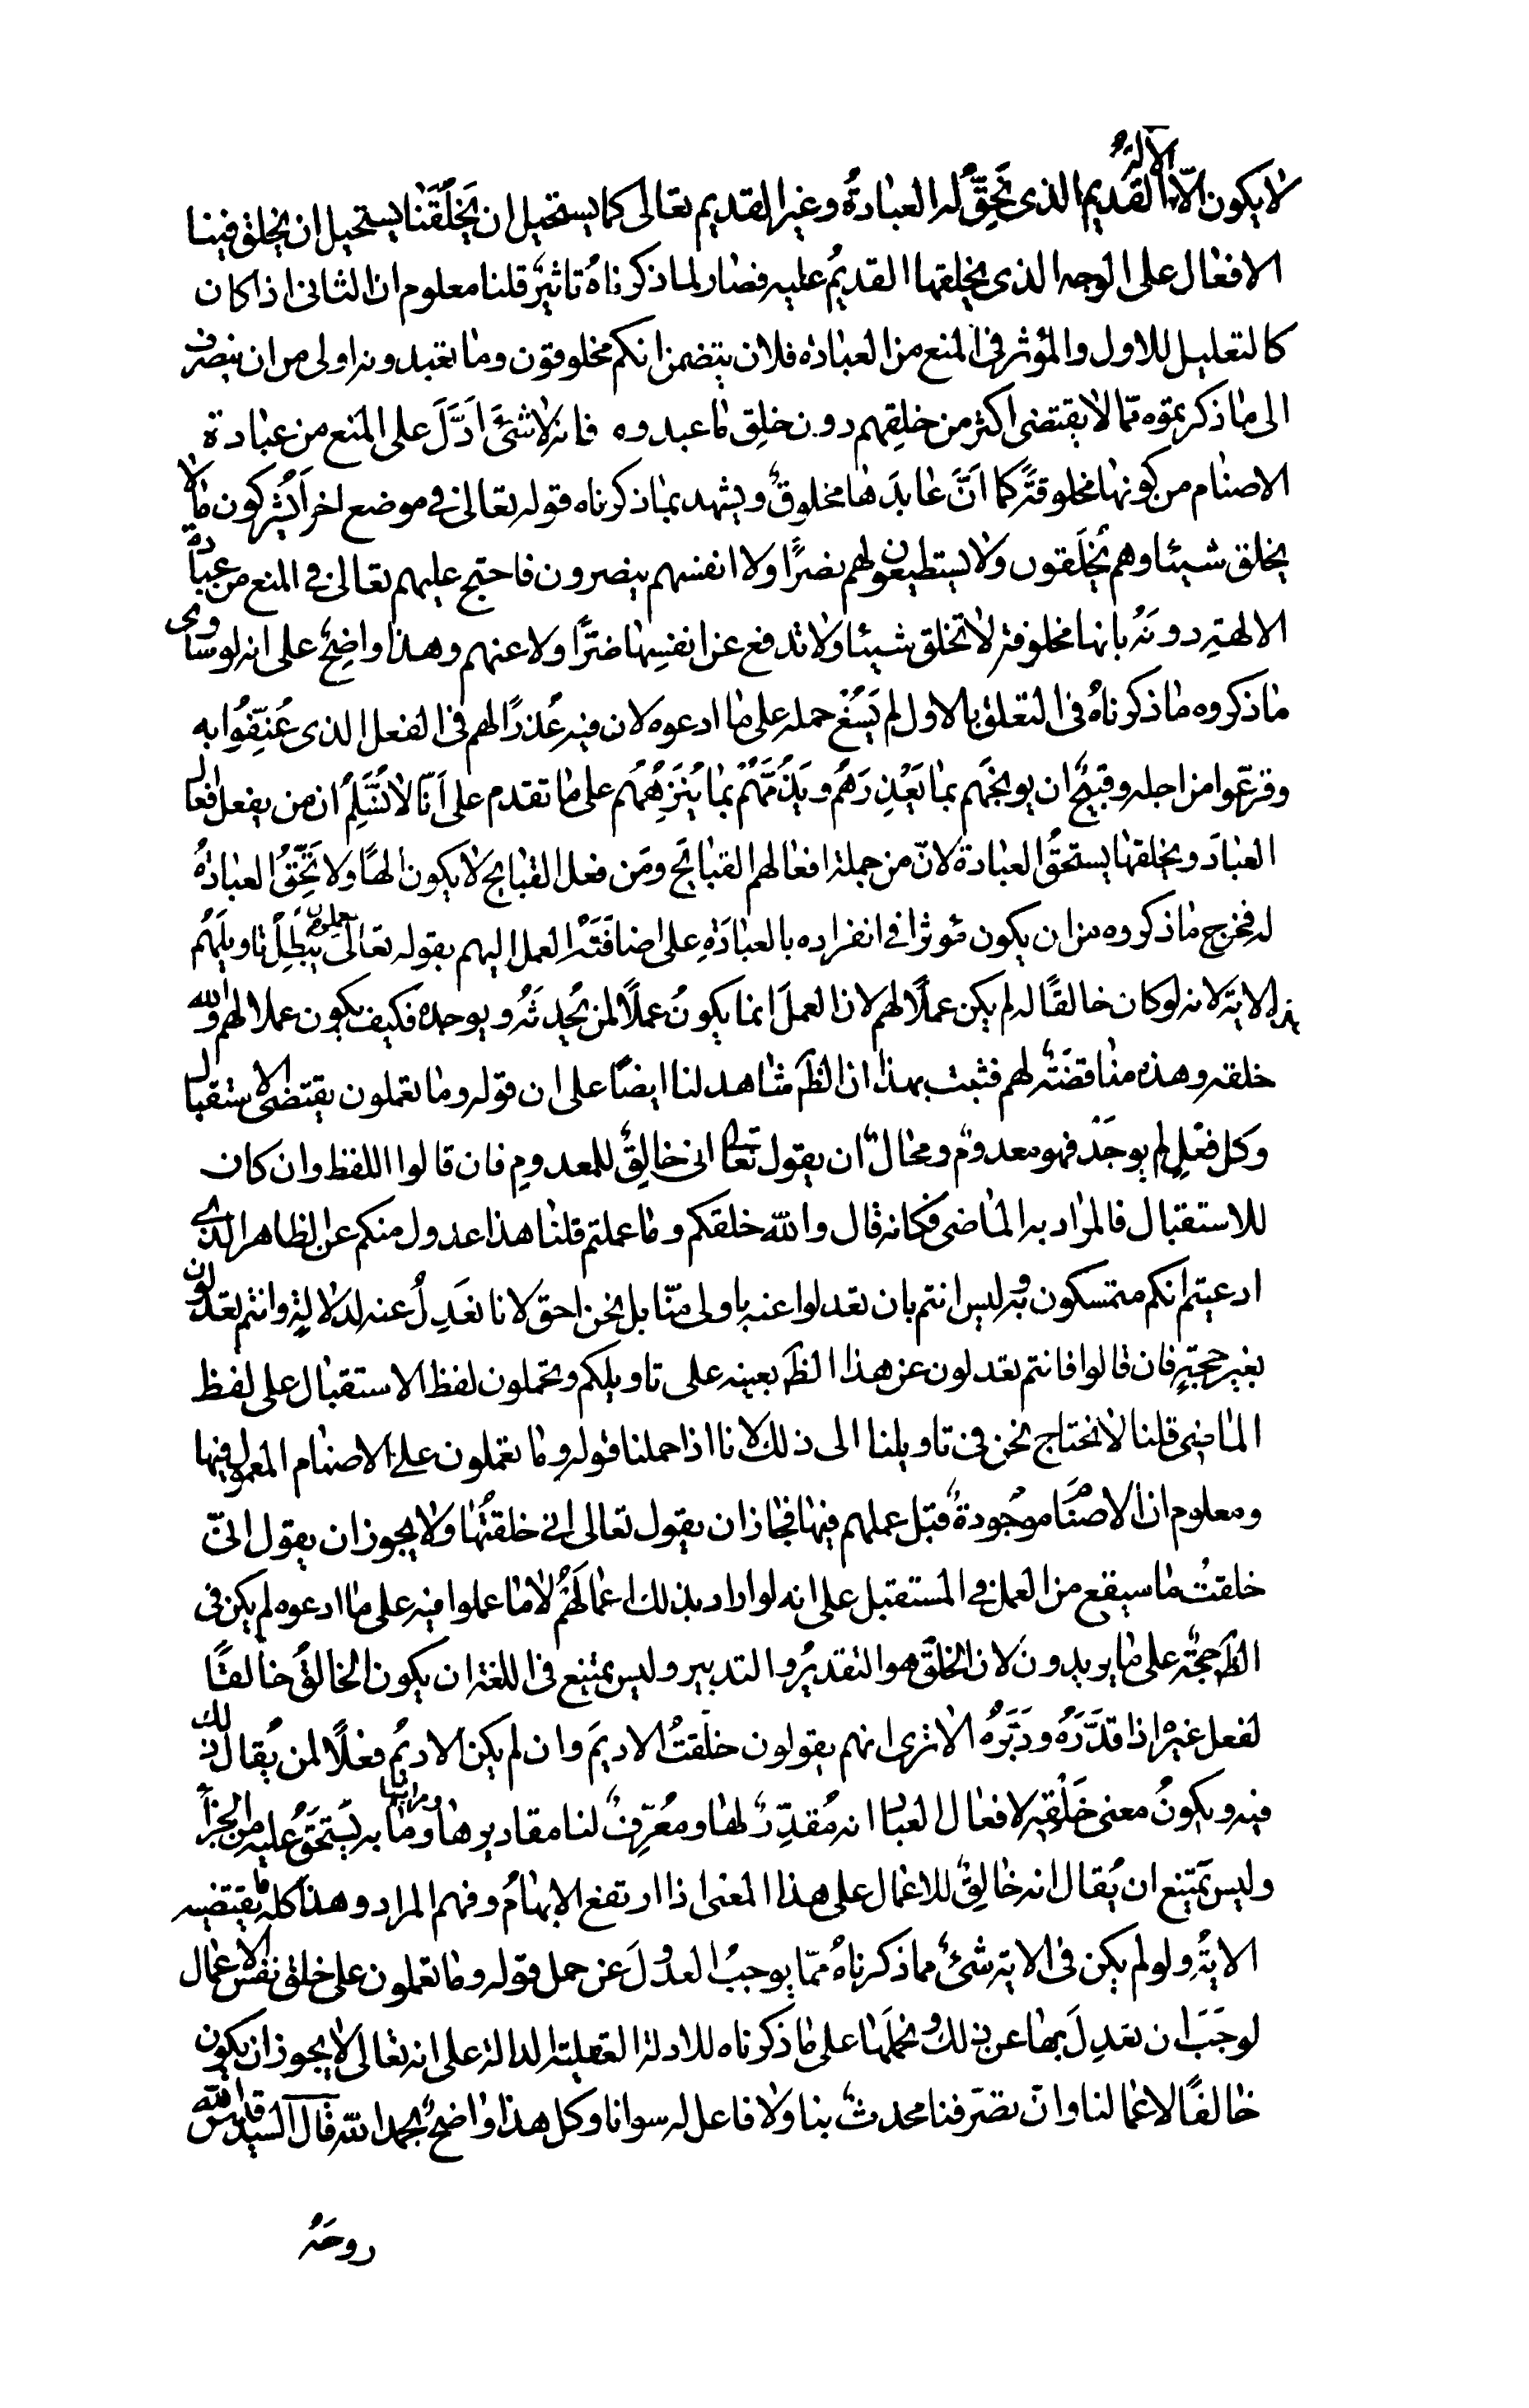 لا يكون الّا الاله القديم الذى تَحِقّ له العبادةُ وغير القديم تعالى كما يستحيل ان يَخلُقَنا يستحيل ان يخلق فينا
الافعال على الوجه الذى يخلقها القديمُ عليه فصار لما ذكرناهُ تاثيرٌ قلنا معلوم ان الثانى اذا كان
كالتعليل للاول والمؤثر فى المنع من العبادة فلان يتضمن انكم مخلوقون وما تعبدونه اولى من ان ينصرف
الى ما ذكرتموه ممّا لا يقتضى اكثر من خلقِهم دون خلِق ما عبدوه فانه لا شئَ ادَلَّ على المنع من عبادة
الاصنام من كونها مخلوقةً كما انَّ عابدَها مخلوقٌ ويشهد بما ذكرناه قوله تعالى فى موضع اخر أيُشركون ما لا
يخلق شيئا وهم يُخلَقون ولا يستطيعون لهم نصرًا ولا انفسهم ينصرون فاحتج عليهم تعالى فى المنع من عبادة
الالهةِ دونَهُ بانها مخلوقة لا تخلق شيئا ولا تدفع عن انفسِها ضرًّا ولا عنهم وهذا واضِحٌ على انه لو ساوى
ما ذكروه ما ذكرناهُ فى التعلق بالاول لم يَسُغْ حمله على ما ادعوه لان فيه عُذرًا لهم فى الفعل الذى عُنِّفُوا به
وقرّعوا من اجله وقبيحٌ ان يوبخَهم بما يَعْذِرَهُم ويَذُمَّهُمْ بما يُنَزِّهُهُم على ما تقدم على اَنّا لا نُسَلِّمُ ان من يفعل افعال
العبادَ ويخلقها يستحقُّ العبادة لانّ من جملة افعالهم القبايَح ومَن فعل القبايح لا يكون الهًا ولا تَحِّقُ العبادةُ
له فخرج ما ذكروه من ان يكون مؤثرا فى انفراده بالعبادَةِ على اضافَتَه العمل اليهم بقوله تعالى تعملون يُبْطِلُ تاويلَهُم
هذه الاية لانه لو كان خالقًا له لم يكن عملًا لهم لان العملَ انما يكونُ عملًا لمن يُحدِثَهُ ويوجده فكيف يكون عملا لهم والله
خلقه وهذه مناقضَتٌه لهم فثبت بهذا ان الظَّ مشاهد لنا ايضًا على ان قوله وما تعملون يقتضى الاستقبال
وكل فعْلٍ لم يوجَدْ فهو معدومٌ ومحالٌ ان يقول تعالى انى خالِقٌ للمعدومِ فان قالوا اللفظ وان كان
للاستقبال فالمراد به الماضى فكانه قال والله خلقكم وما عملتم قلنا هذا عدول منكم عن الظاهر الذى
ادعيتم انكم متمسكون به وليس انتم بان تعدلوا عنه باولى منّا بل نحن احق لانا نعَدِلُ عنه لدلالةٍ وانتم تعدلون
بغير حجةٍ فان قالوا فانتم تعدلون عن هذا الظَّ بعينه على تاويلكم وتحملون لفظ الاستقبال على لفظ
الماضى قلنا لا نحتاج نحن فى تاويلنا الى ذلك لانا اذا حملنا قوله وما تعملون على الاصنام المعمول فيها
ومعلوم ان الاصنام موجُودةٌ قبل عملهم فيها فجاز ان يقول تعالى انى خلقتُها ولا يجوز ان يقول انىّ
خلقتُ ما سيقع من العمل فى المستقبل على انه لو اراد بذلك اعمالَهُمُ لا ما عملوا فيه على ما ادعوه لم يكن فى
الظَّ حجةٌ على ما يريدونَ لان الخلْقَ هو التقديرُ والتدبير وليس يمتنع فى اللغة ان يكون الخالقُ خالقًا
لفعل غيرِه اذا قدَّرَهُ ودَبَّرَهُ الا ترى انهم يقولون خلَقتُ الاديمَ وان لم يكن الاديمُ فعلًا لمن يُقال ذلك
فيه ويكونُ معنى خَلْقِهِ لافعال العباد انه مُقدِّرٌ لها ومُعَرِّفٌ لنا مقاديرها ومراتبها وما به يَستَحَقُّ عليه من الجزا
وليس يَمْتنع ان يُقال انه خالِقٌ للاعمال على هذا المعنى اذا ارتفع الابهامُ وفهم المراد وهذا كله ما يقتضيه
الايةُ ولو لم يكن فى الاية شئٌ مما ذكرناهُ ممّا يوجبُ العدولَ عن حمل قوله وما تعملون على خلق نفس الاعمال
لوجَبَ ان نعدِلَ بها عن ذلك ونحملَها على ما ذكرناه للادلة العقلية الدالة على انه تعالى لا يجوز ان يكون
خالقًا لاعمالنا وانّ تصرّفنا محدثٌ بنا ولا فاعل له سوانا وكل هذا واضحٌ بحمد الله قال السيد قدس الله
روحَهُ